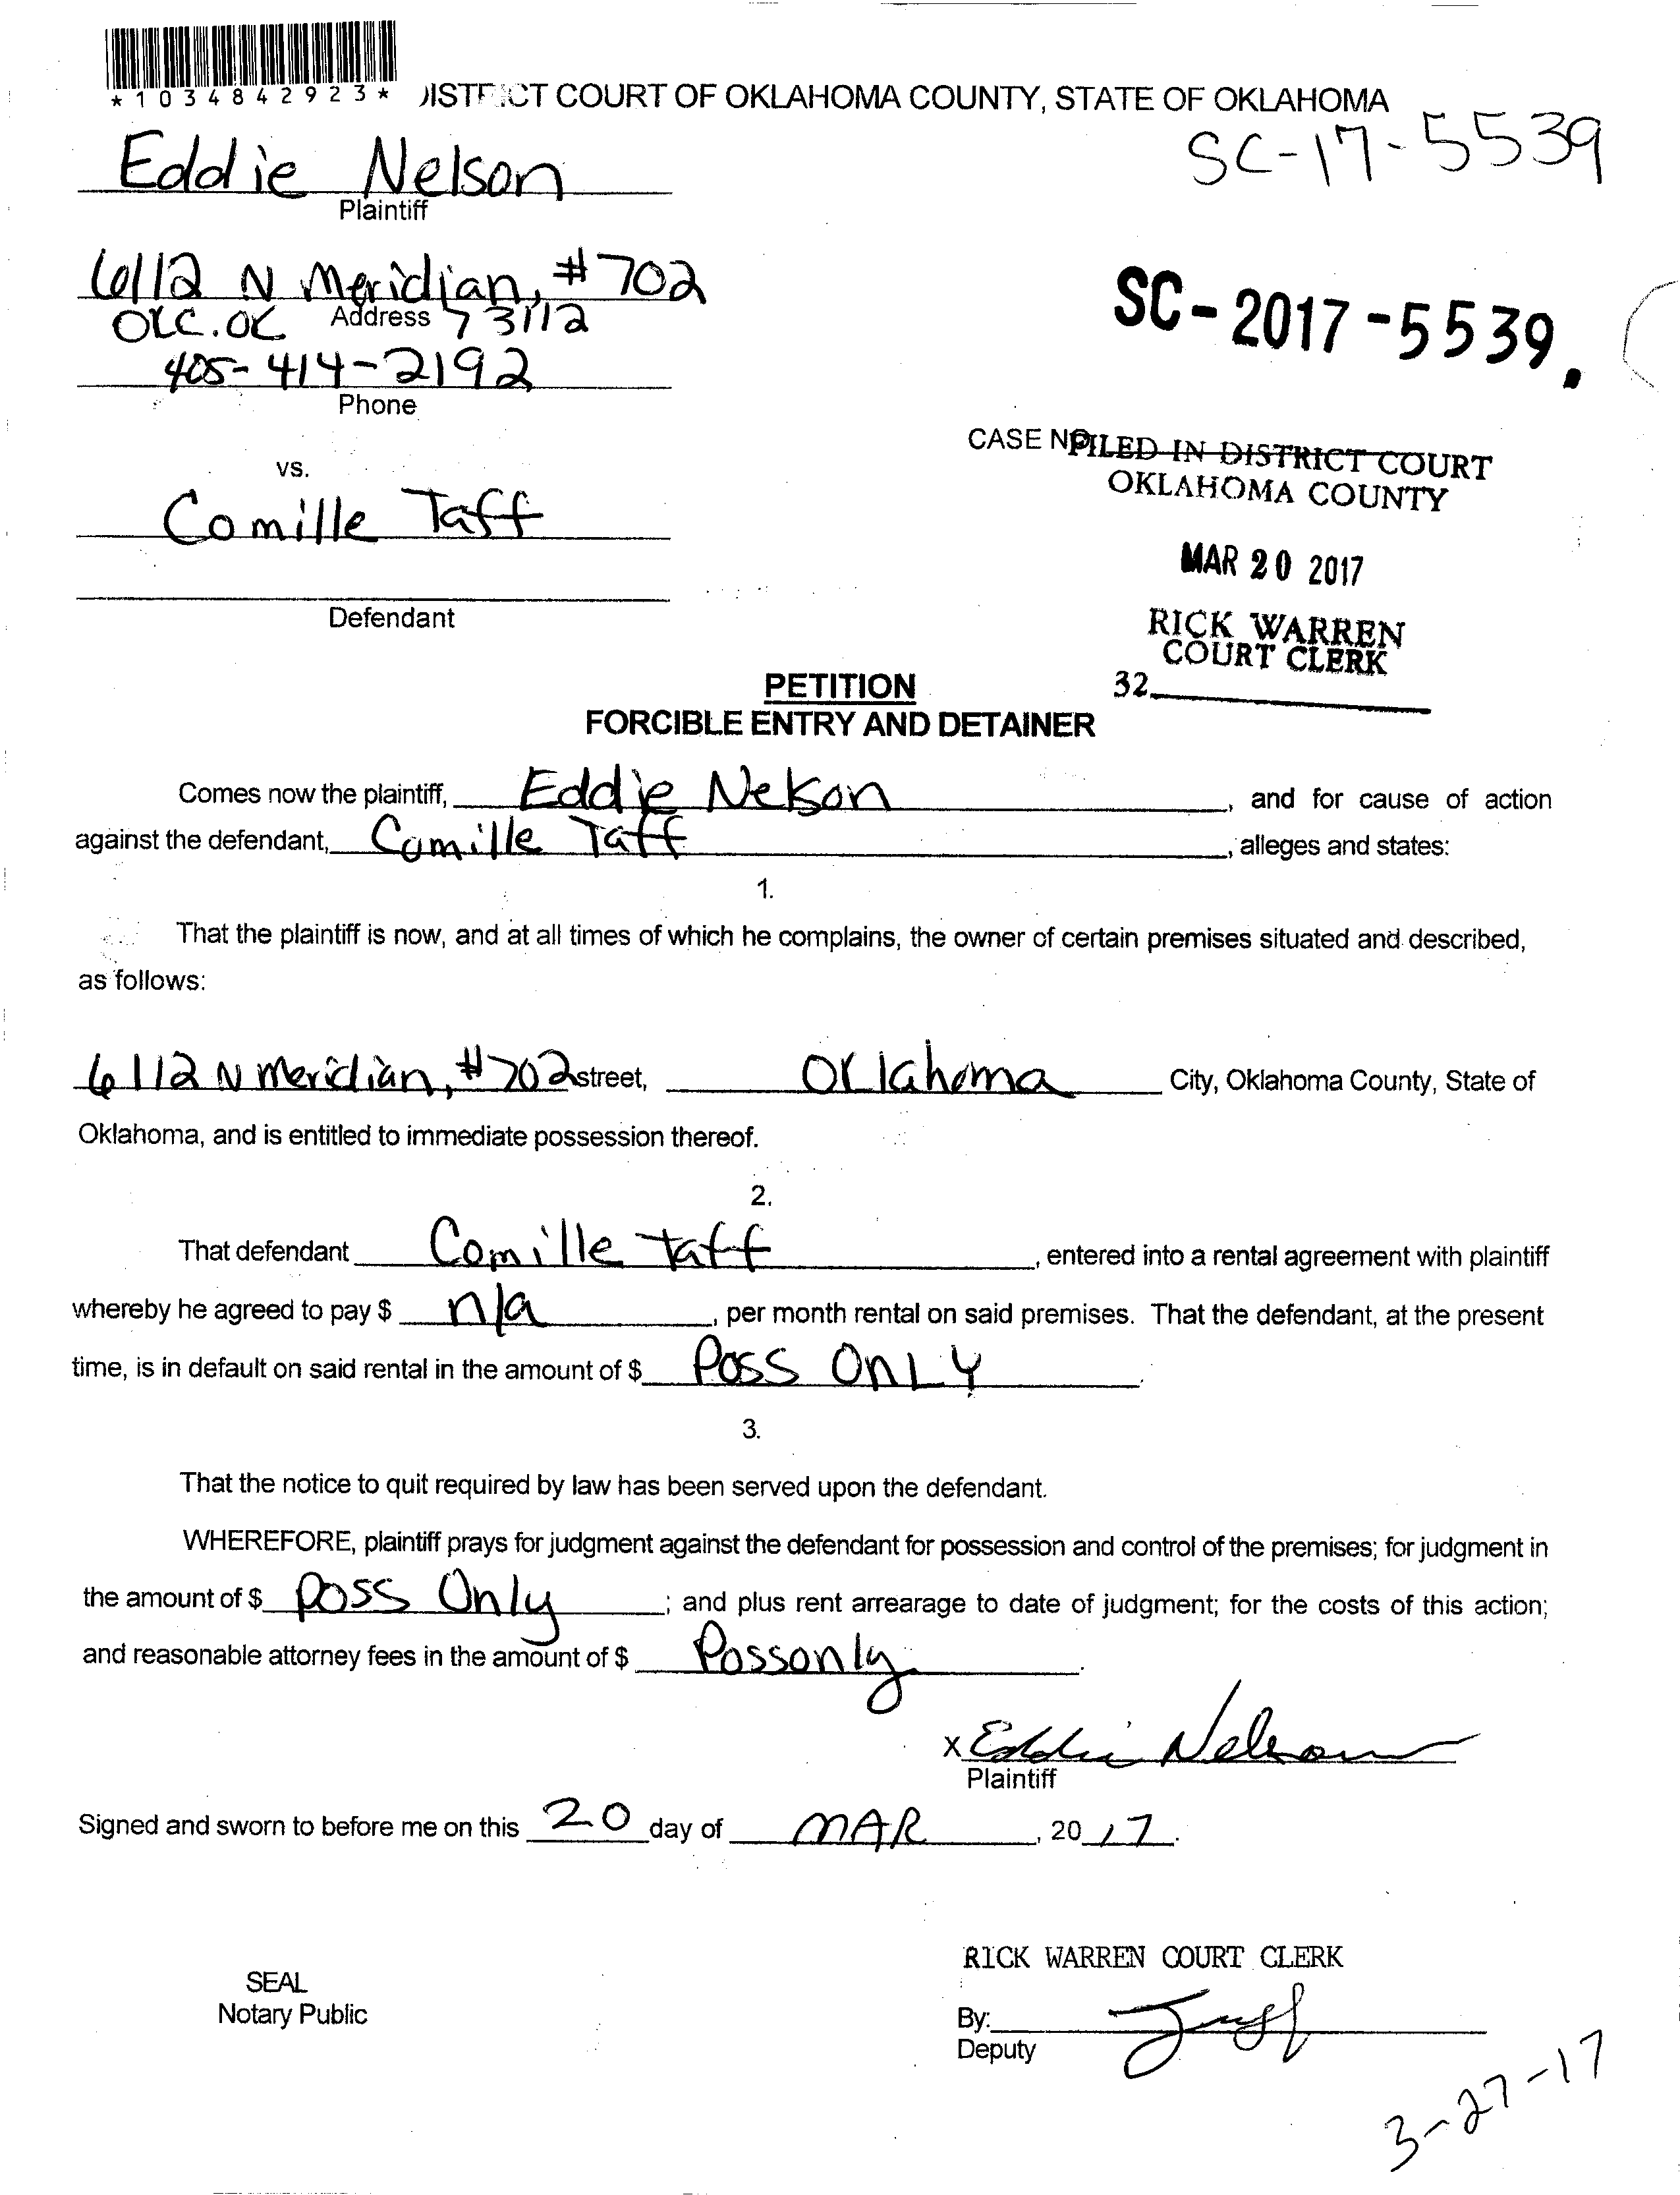 *1034842923*
DISTRICT COURT OF OKLAHOMA COUNTY, STATE OF OKLAHOMA
SC-17-5539
Eddie Nelson
Plaintiff
6112 N Meridian, #702
Address
OKC. OK 73112
SC-2017-5539.
405-414-2192
Phone
CASE NO.
FILED IN DISTRICT COURT
OKLAHOMA COUNTY
vs.
Comille Taff
MAR 20 2017
Defendant
RICK WARREN
COURT CLERK
32
PETITION
FORCIBLE ENTRY AND DETAINER
Comes now the plaintiff, Eddie Nelson, and for cause of action
against the defendant, Camille Taff, alleges and states:
1.
That the plaintiff is now, and at all times of which he complains, the owner of certain premises situated and described,
as follows:
6112 N Meridian, #702 street, Oklahoma City, Oklahoma County, State of
Oklahoma, and is entitled to immediate possession thereof.
2.
That defendant Comille taff, entered into a rental agreement with plaintiff
whereby he agreed to pay $ n/a, per month rental on said premises. That the defendant, at the present
time, is in default on said rental in the amount of $ Poss OnLY.
3.
That the notice to quit required by law has been served upon the defendant.
WHEREFORE, plaintiff prays for judgment against the defendant for possession and control of the premises; for judgment in
the amount of $ poss Only; and plus rent arrearage to date of judgment; for the costs of this action;
and reasonable attorney fees in the amount of $ Possonly.
x Eddie Nelson
Plaintiff
Signed and sworn to before me on this 20 day of MAR, 2017.
RICK WARREN COURT CLERK
SEAL
Notary Public
By:
Deputy
3-27-17